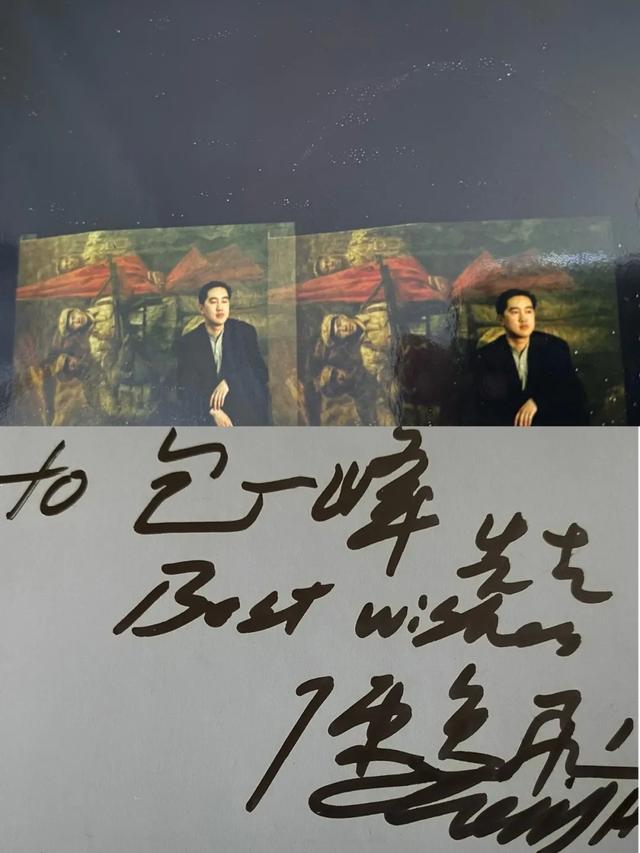 to 包一峰
先生
Best wishes